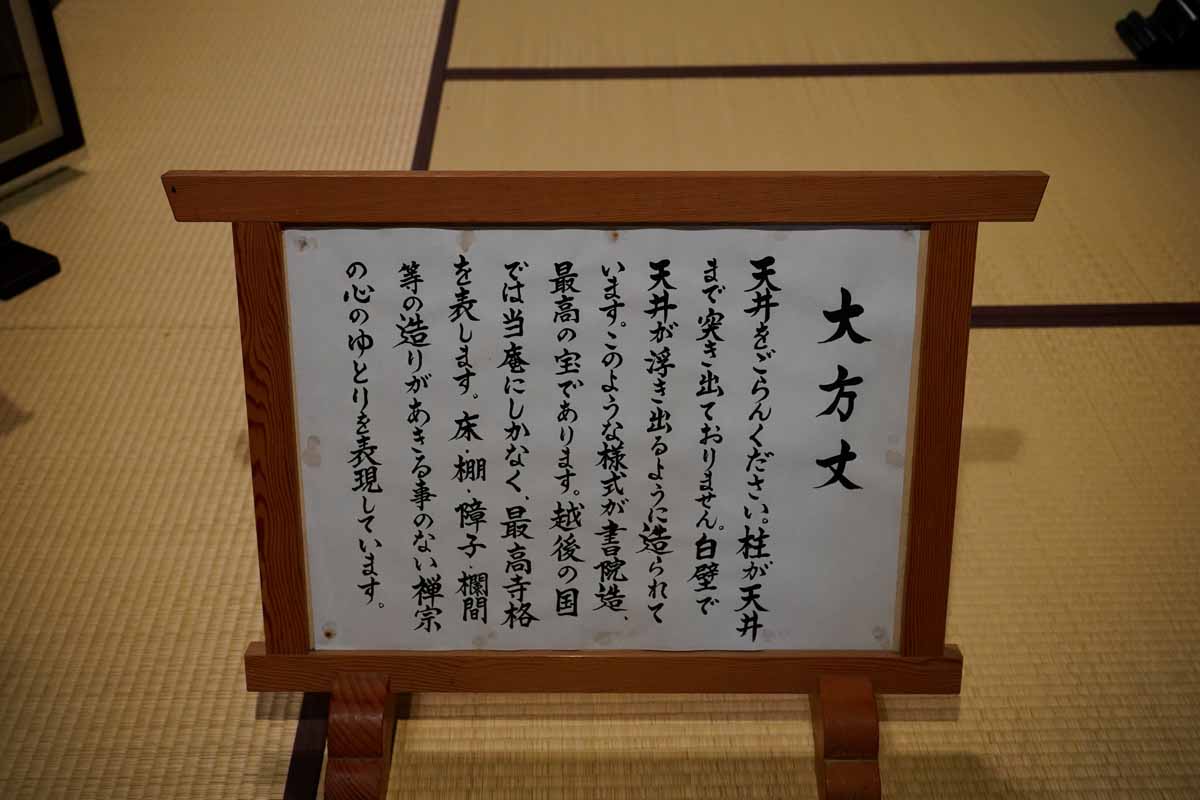 大方丈
天井をごらんください。柱が天井
まで突き出ておりません。白壁で
天井が浮き出るように造られて
います。このような様式が書院造、
最高の宝であります。越後の国
では当庵にしかなく、最高寺格
を表します。床・棚・障子・欄間
等の造りがあきる事のない禅宗
の心のゆとりを表現しています。